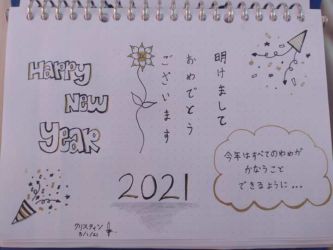 HAPPY
NEW
YEAR
明けまして
おめでとう
ございます
2021
今年はすべてのゆめが
かなうこと
できるように...
クリスティン
5/1/21